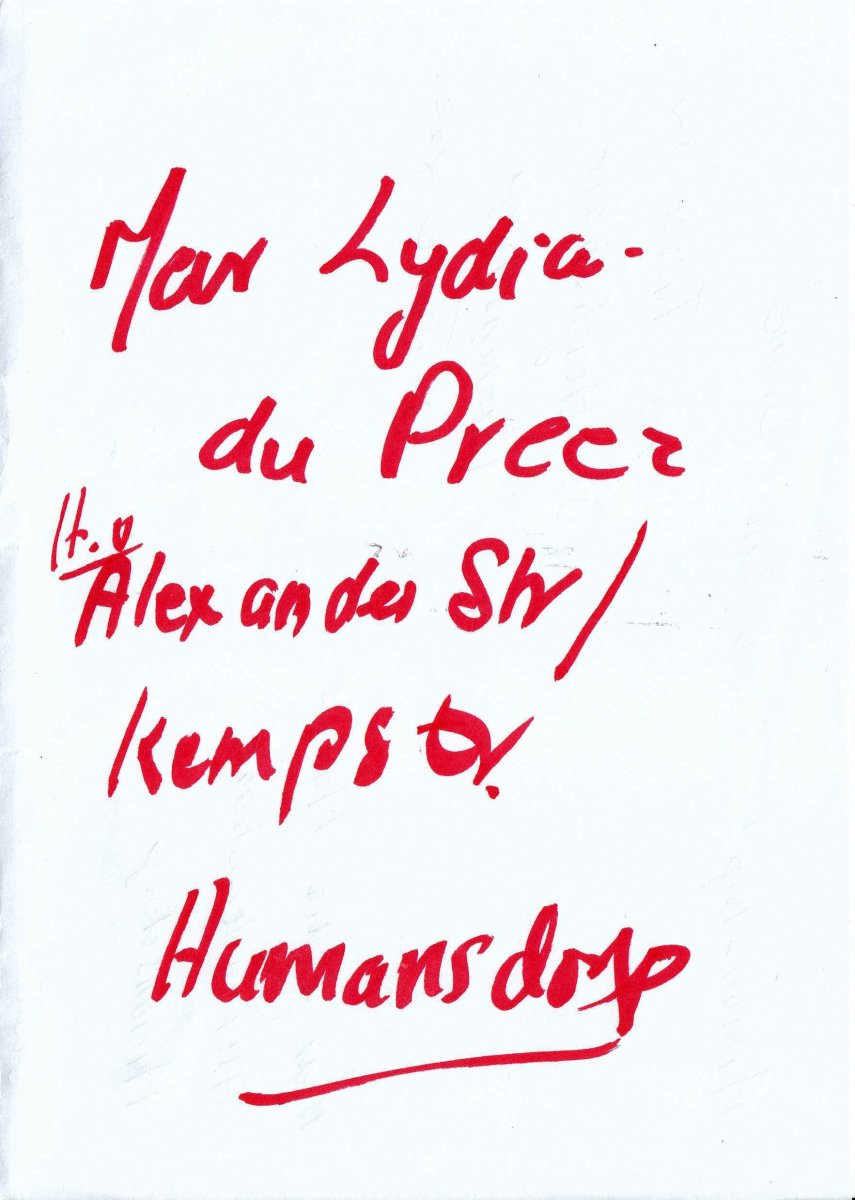 Mev Lydia-
du Preez
H.v
Alexander Str/
Kemp Str.
Humansdorp